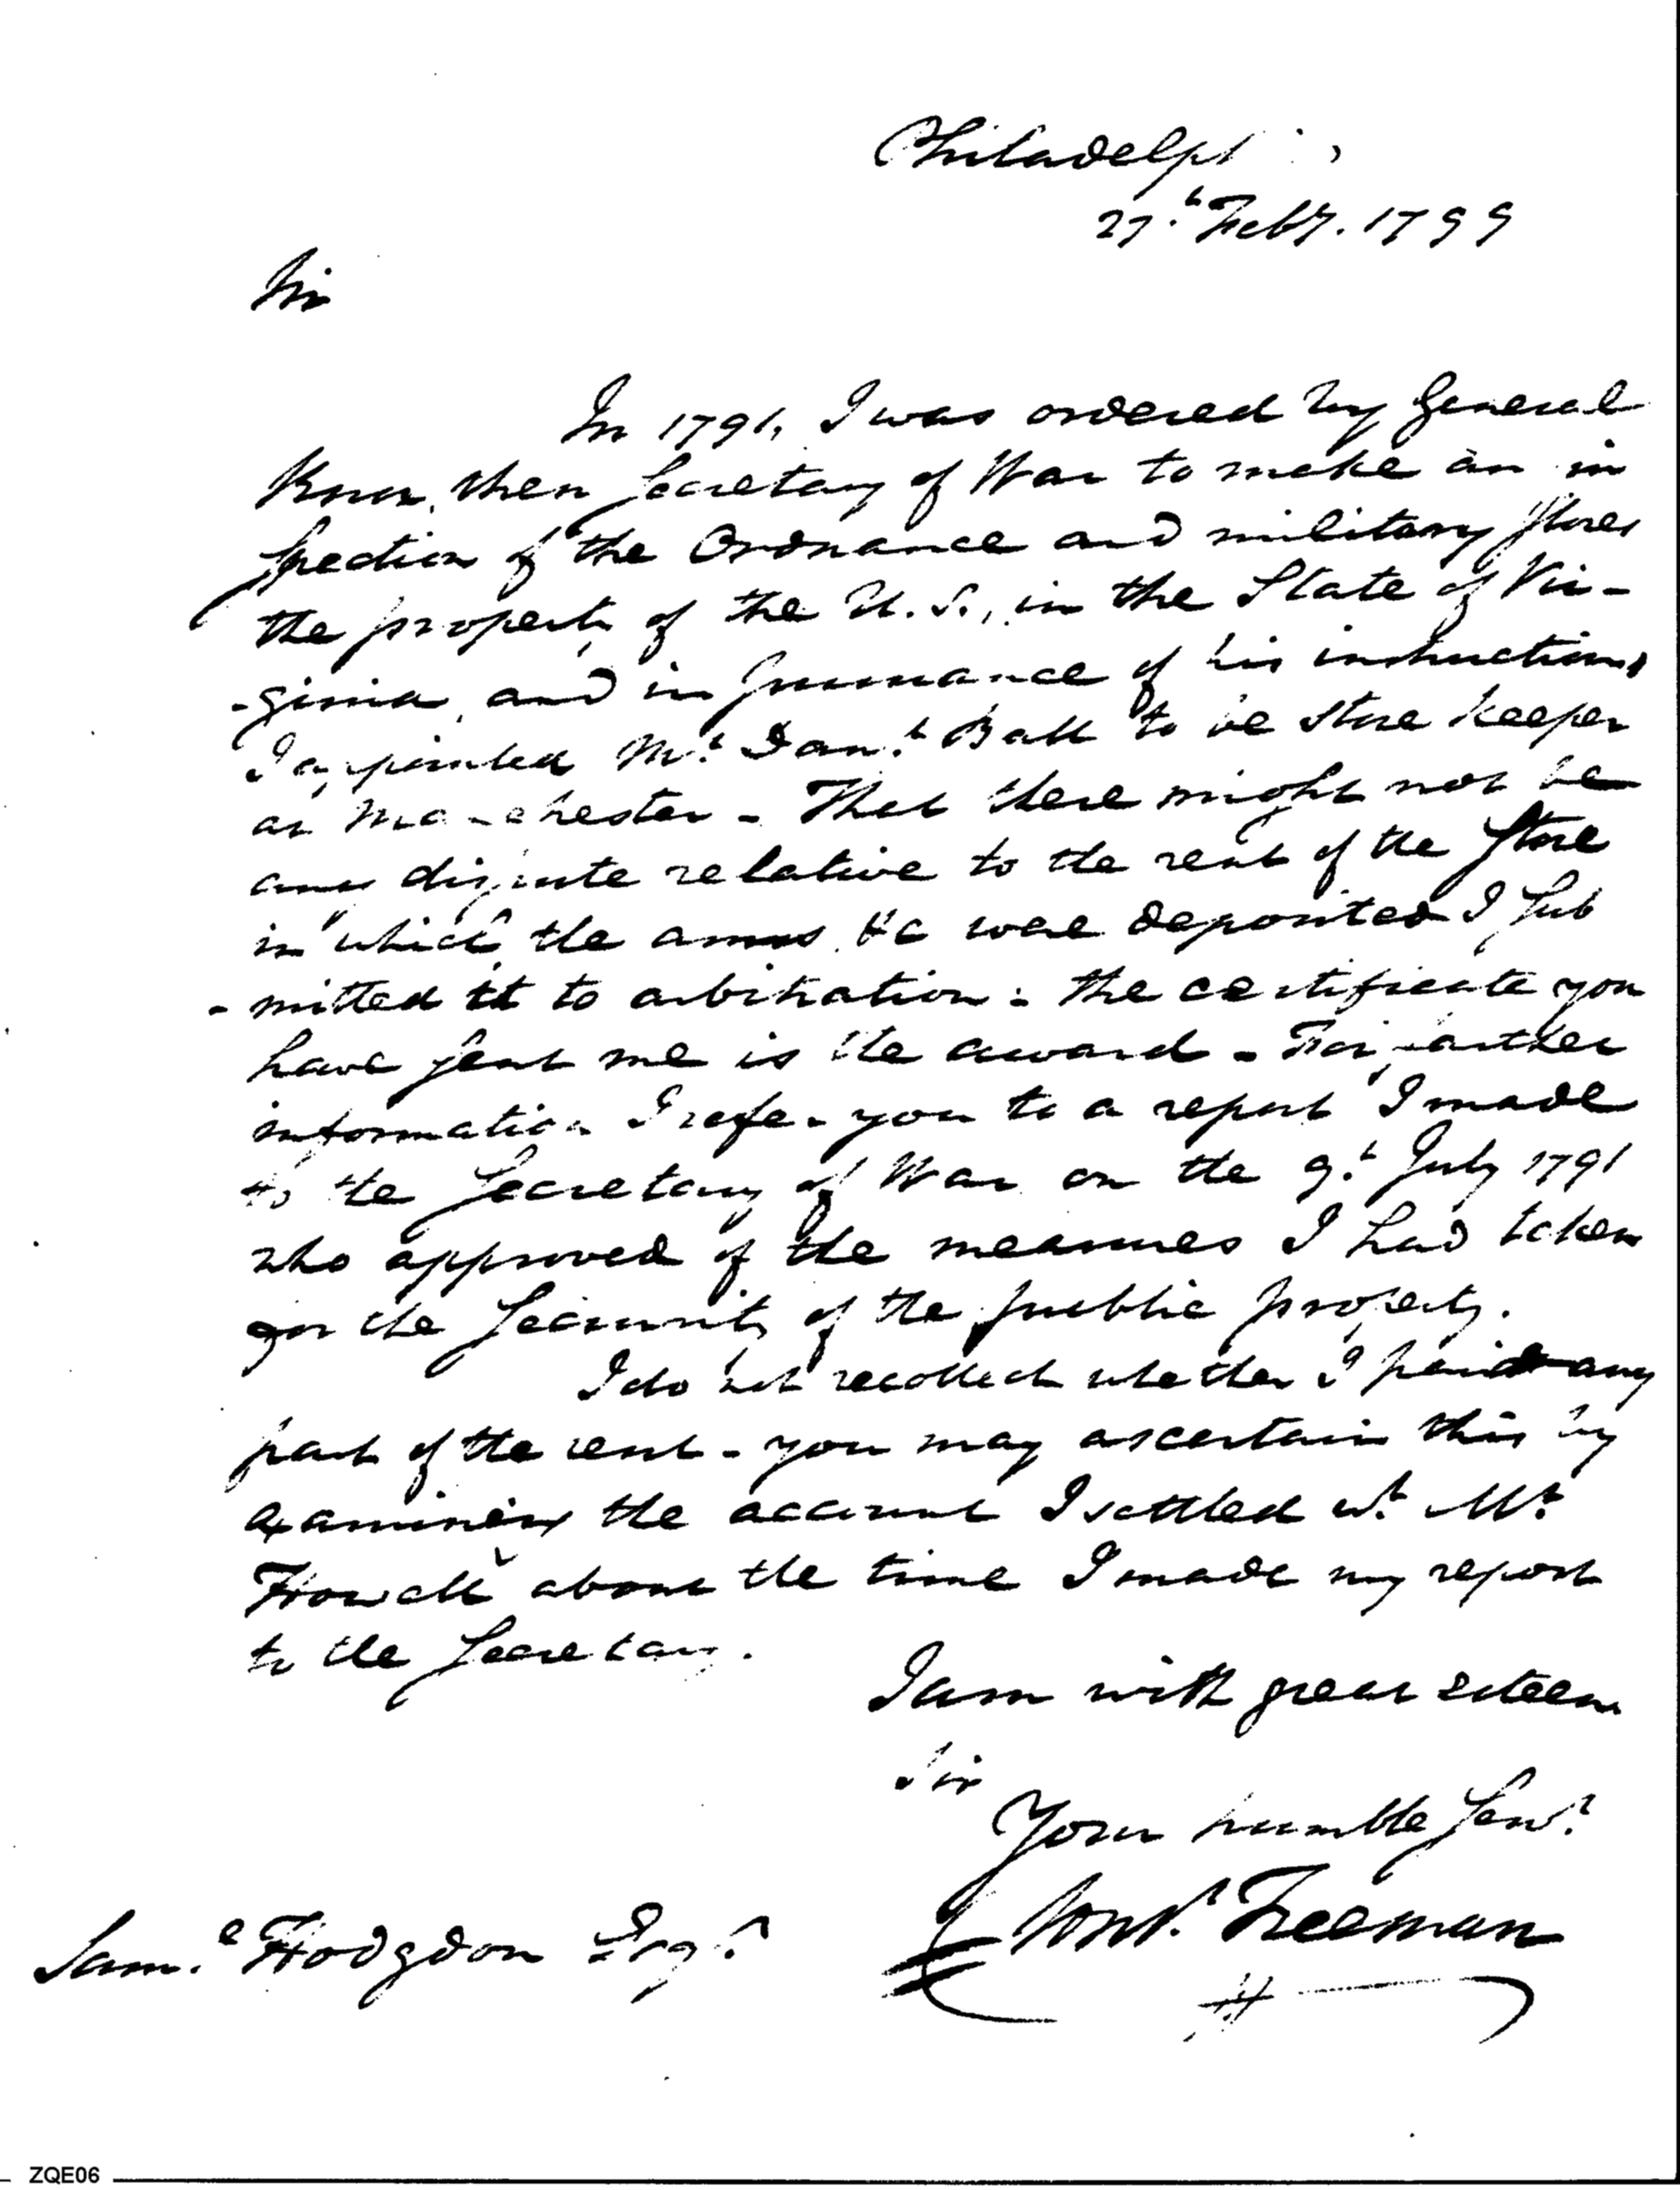 Philadelphia
27th Feby. 1799
Sir
In 1791, I was ordered by General
Knox, then Secretary of War to make an in
spection of the Ordnance and military Stores
the property of the U.S., in the State of Vir-
-ginia, and in pursuance of his instructions
I appointed Mr. Danl. Ball to be Store keeper
at Manchester - That there might not be
any dispute relative to the rent of the Store
in which the arms &c were deposited I sub
- mitted it to arbitration: the certificate you
have sent me is the award - For farther
information I refer you to a report I made
to the Secretary of War on the 9th July 1791
who approved of the measures I had taken
for the Security of the public property.
I do not recollect whether I paid any
part of the rent - you may ascertain this by
examining the account I settled wt. Mr.
Howell about the time I made my report
to the Secretary.
I am with great esteem
Sir
Your humble Servt.
Freeman
Saml. Hodgdon Esqr.
ZQE06